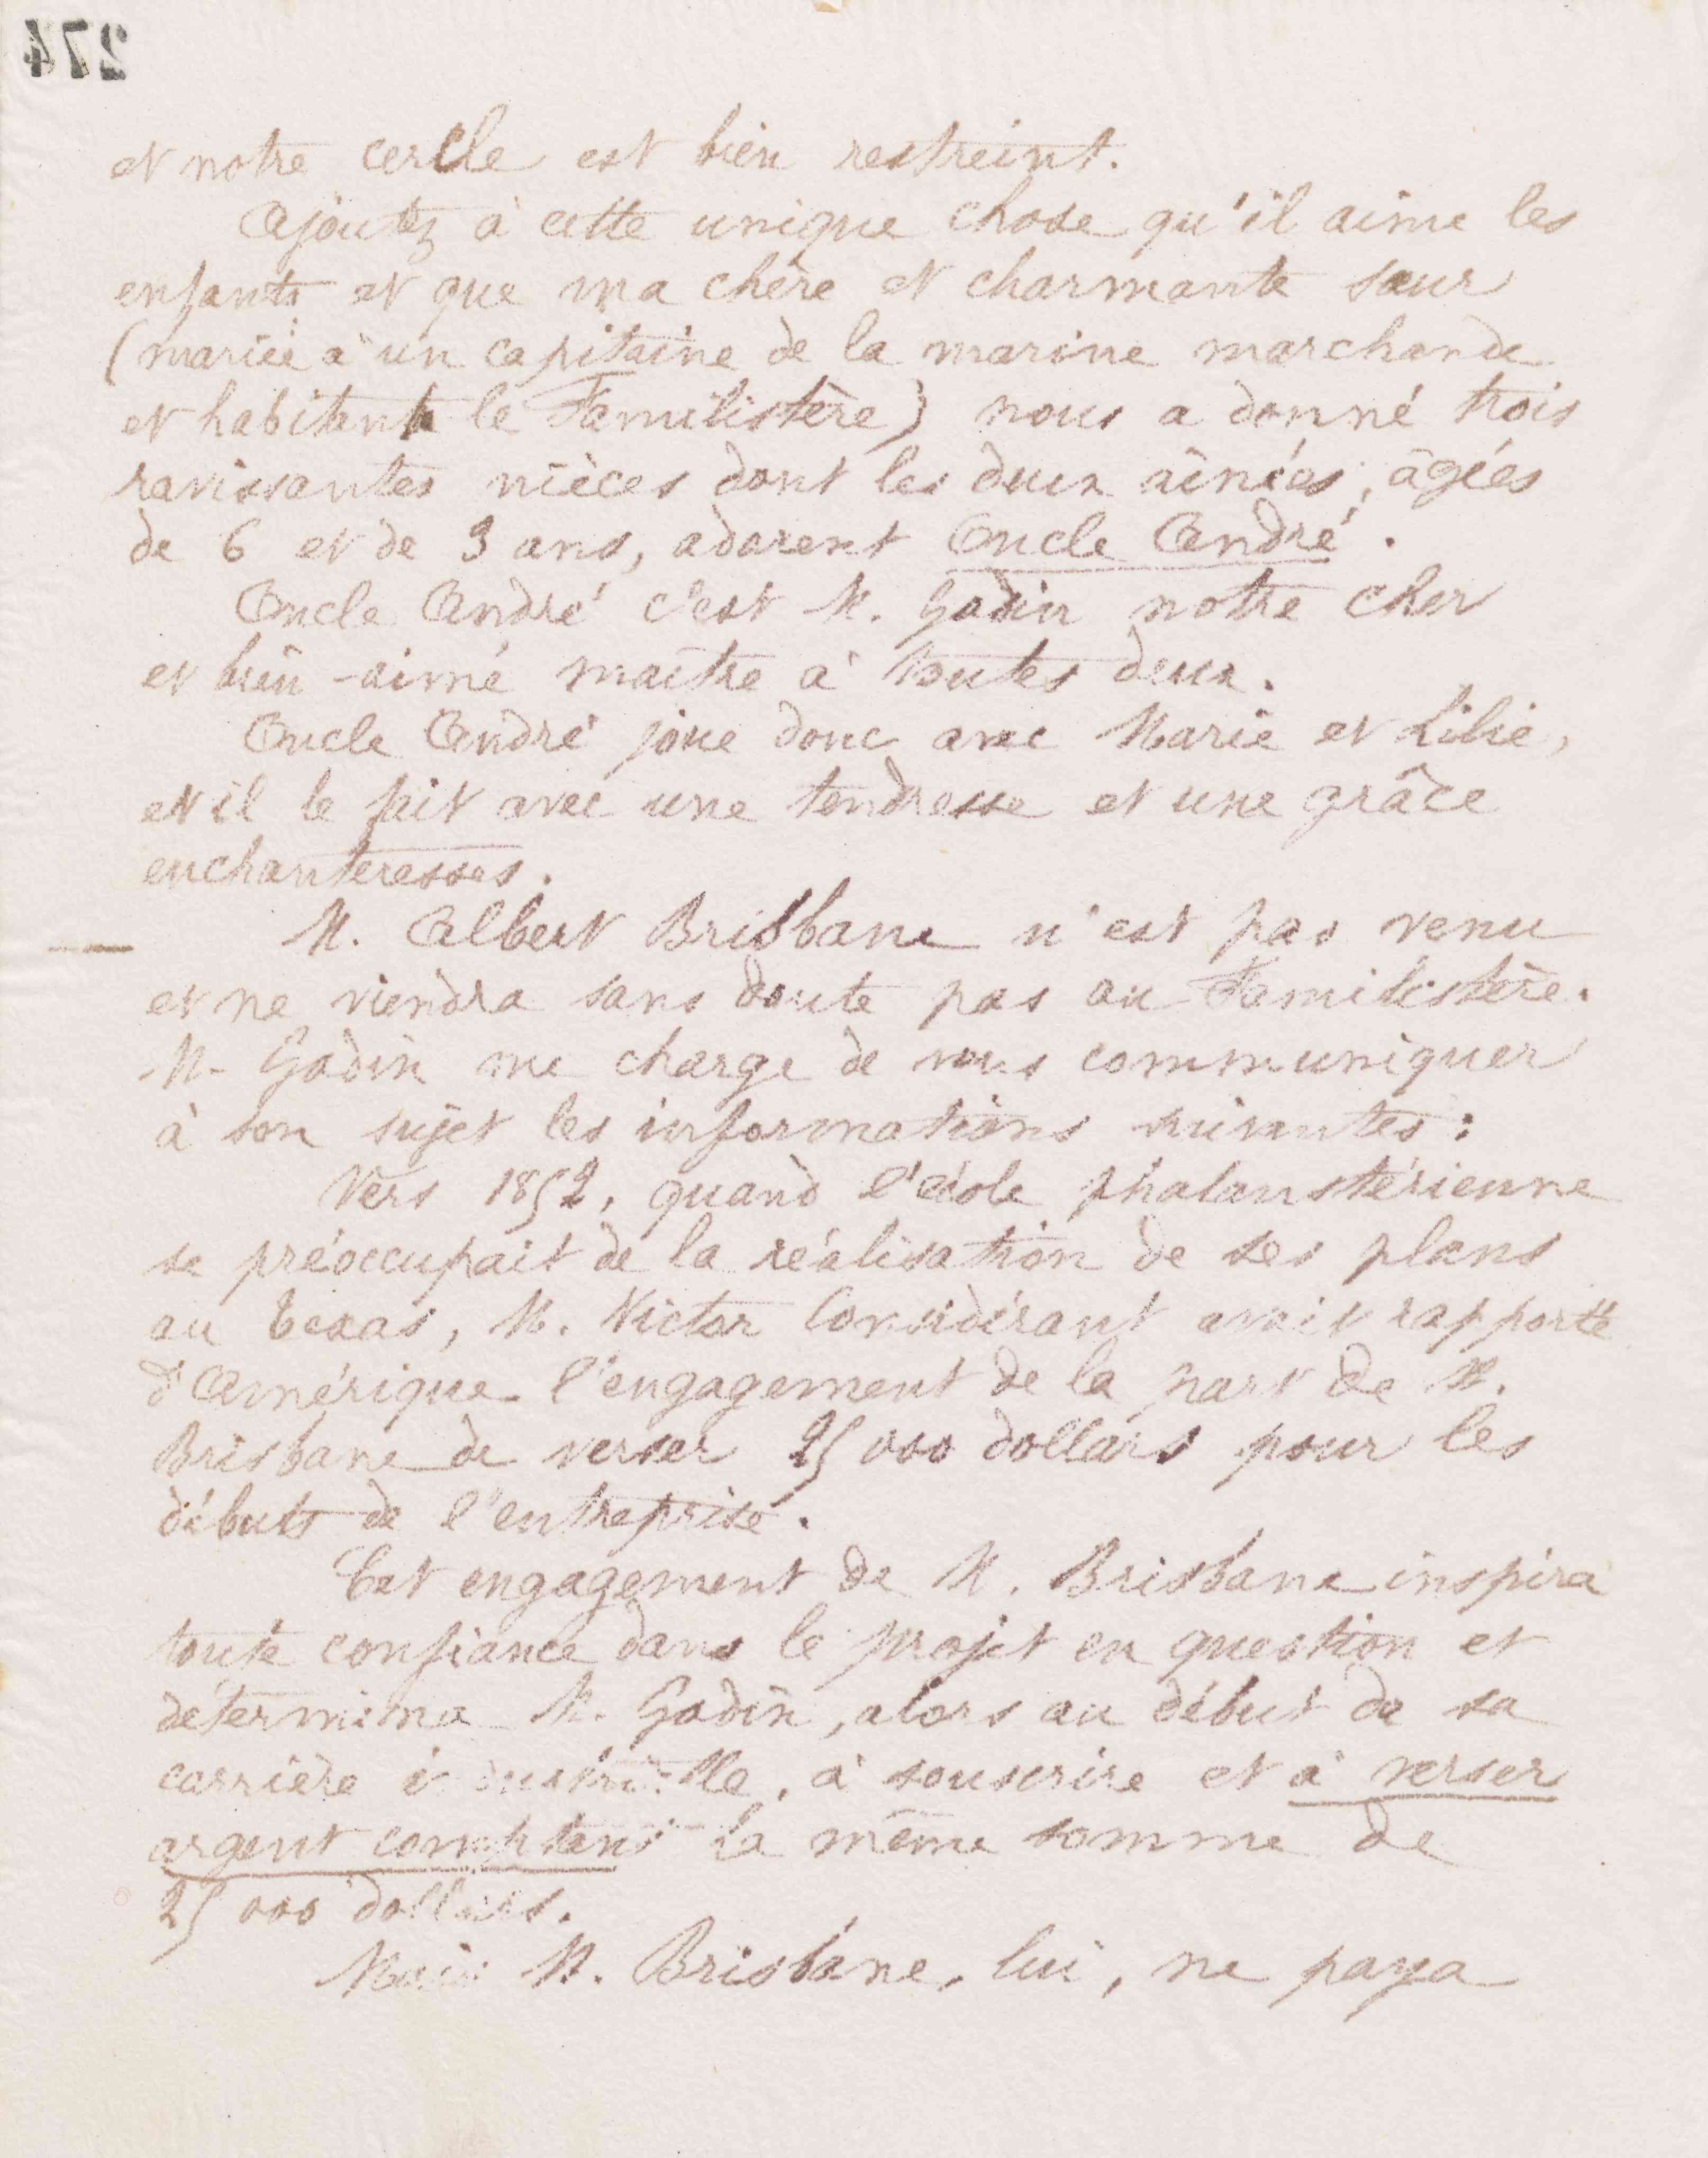 274
et notre cercle est bien restreint.
Ajoutez à cette unique chose qu'il aime les
enfants et que ma chère et charmante sœur
(mariée à un capitaine de la marine marchande
et habitant le Familistère) nous a donné trois
ravissantes nièces dont les deux aînées, âgées
de 6 et de 3 ans, adorent Oncle André.
Oncle André c'est M. Godin notre cher
et bien-aimé maître à toutes deux.
Oncle André joue donc avec Marie et Lilie,
et il le fait avec une tendresse et une grâce
enchanteresses.
M. Albert Brisbane n'est pas venu
et ne viendra sans doute pas au Familistère.
M. Godin me charge de vous communiquer
à son sujet les informations suivantes :
Vers 1852, quand l'école phalanstérienne
se préoccupait de la réalisation de ses plans
au Texas, M. Victor Considérant avait rapporté
d'Amérique l'engagement de la part de M.
Brisbane de verser 25 000 dollars pour les
débuts de l'entreprise.
Cet engagement de M. Brisbane inspira
toute confiance dans le projet en question et
détermina M. Godin, alors au début de sa
carrière industrielle, à souscrire et à verser
argent comptant la même somme de
25 000 dollars.
Mais M. Brisbane, lui, ne paya